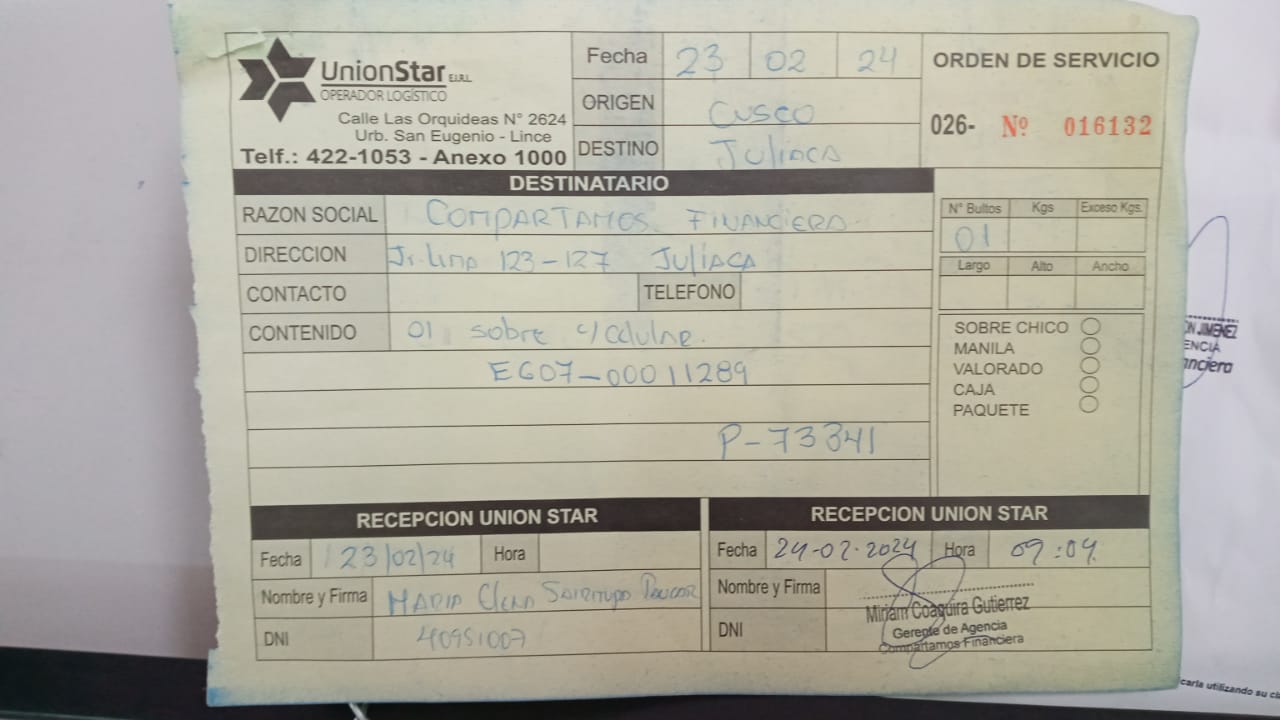 UnionStar E.I.R.L.
OPERADOR LOGÍSTICO
Calle Las Orquideas N° 2624
Urb. San Eugenio - Lince
Telf.: 422-1053 - Anexo 1000
Fecha 23 02 24
ORIGEN Cusco
DESTINO Juliaca
ORDEN DE SERVICIO
026- Nº 016132
DESTINATARIO
RAZON SOCIAL COMPARTAMOS FINANCIERA
DIRECCION Jr. Lima 123-127 JULIACA
CONTACTO TELEFONO
CONTENIDO 01 sobre c/
EG07-00011289
P-73341
N° Bultos Kgs Exceso Kgs.
01
Largo Alto Ancho
SOBRE CHICO
MANILA
VALORADO
CAJA
PAQUETE
RECEPCION UNION STAR
Fecha 23/02/24 Hora
Nombre y Firma MARIA
DNI 40951007
RECEPCION UNION STAR
Fecha 24-02-2024 Hora 09:04
Nombre y Firma
Miriam Coaquira Gutierrez
DNI
Gerente de Agencia
Compartamos Financiera
JIMENEZ
carla utilizando su